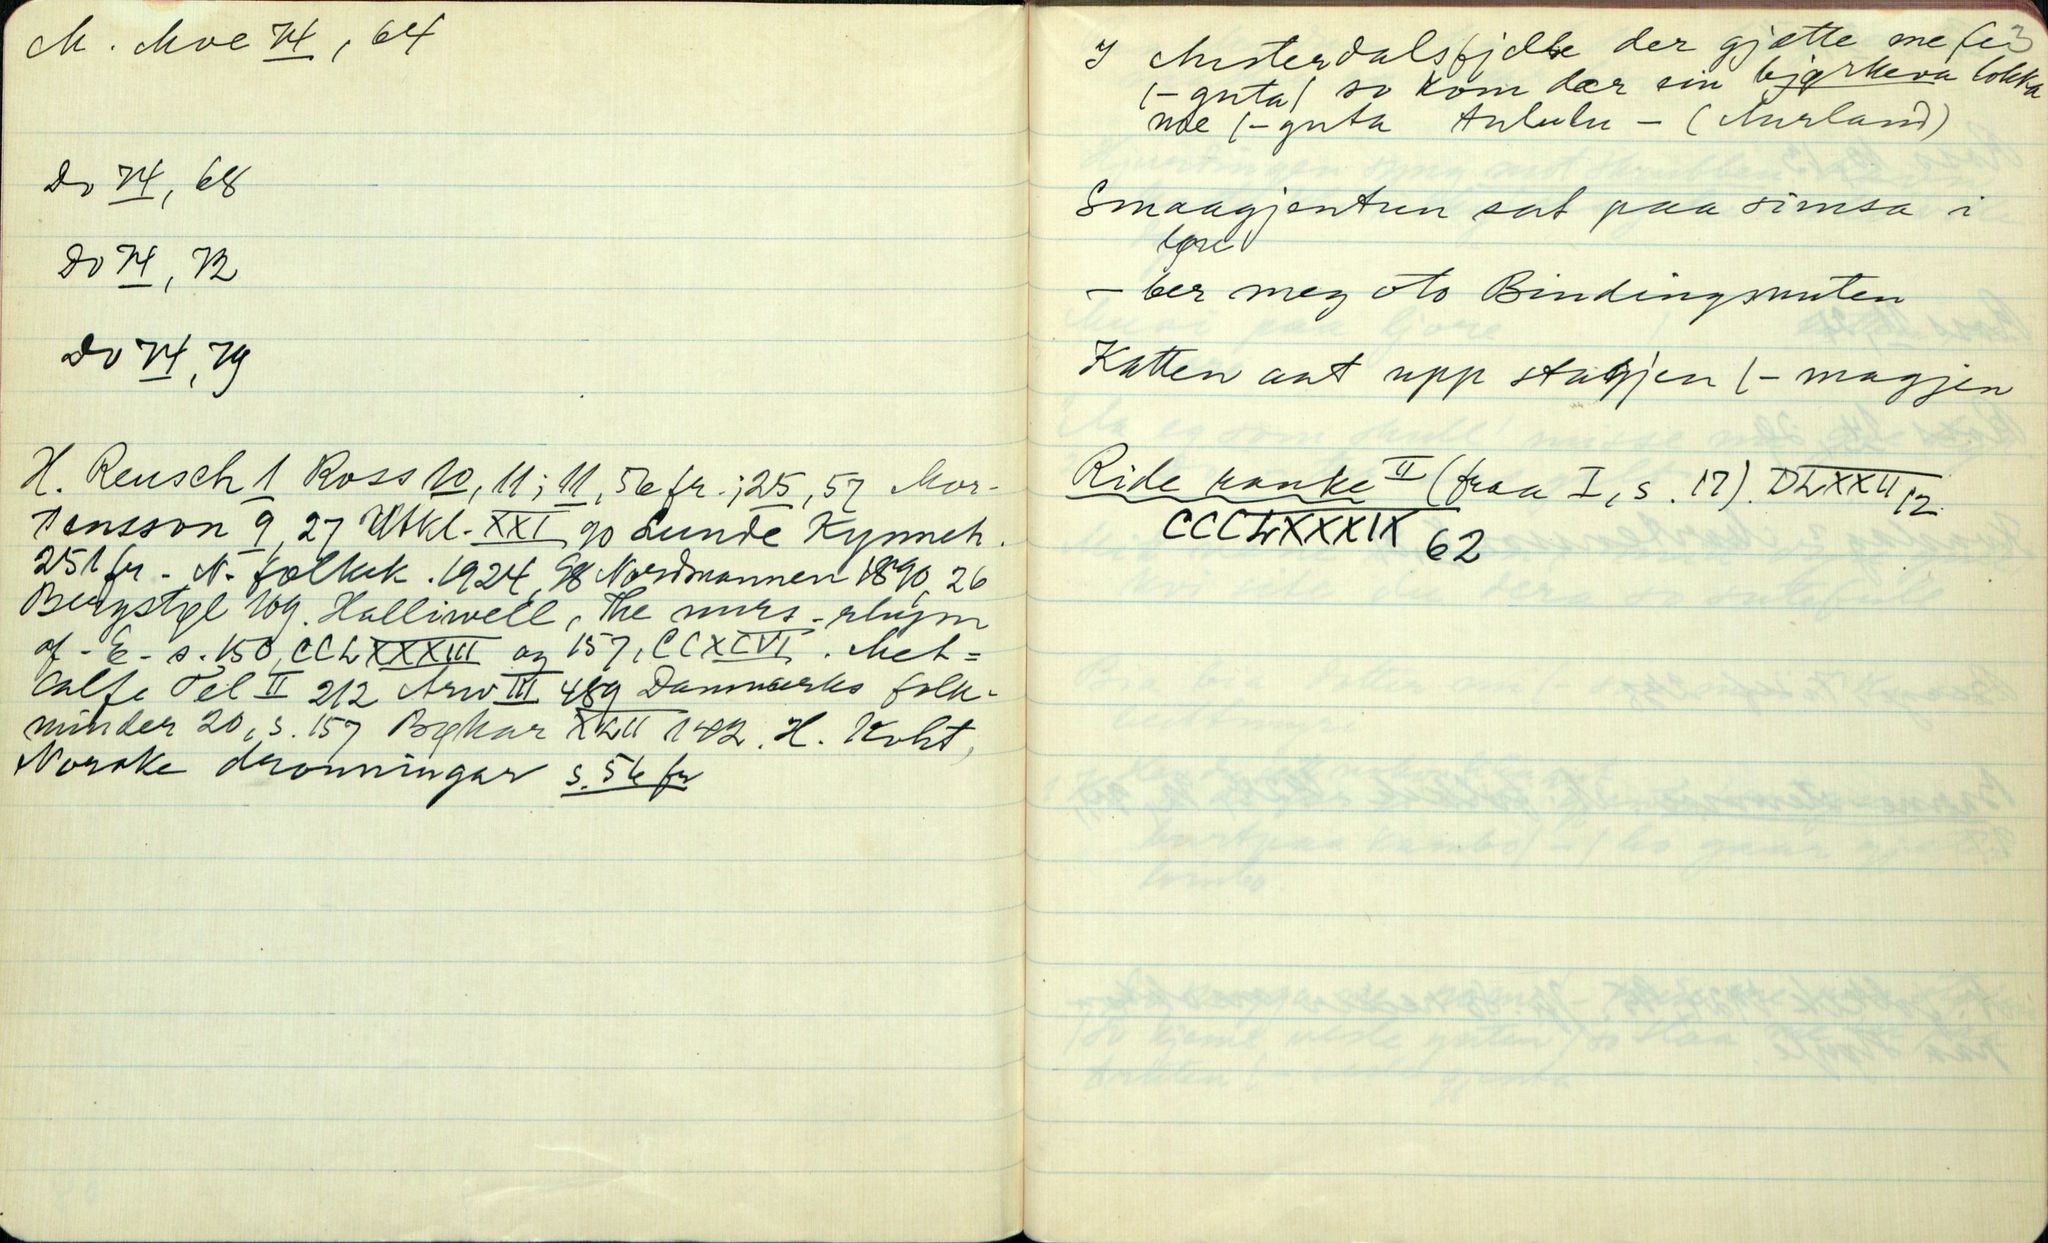 M. Moe 74, 64
Do 74, 68
Do 74, 72
Do 74, 79
H. Reusch 1 Ross 10, 11; 11, 56 fr.; 25, 57 Mor-
tensson 9, 27 Utkl. XXI 90 Lunde Kynneh.
251 fr. N. folkek. 1924, 98 Nordmannen 1890, 26
Bergstøl 109. Halliwell, The nurs. rhym
of - E - s. 150, CCLXXXIII og 157, CCXCVI. Met=
calfe Tel II 212 Arw III 489 Danmarks folk-
minder 20, s. 157 Bøkar XLII 142. H. Koht,
Norske dronningar s. 56 fr
3
I Austerdalsfjelle der gjætte me fe
(- guta) so kom der ein bjørkeva lokka
me (- guta Aululu - (Aurland)
Smaagjentun sat paa simsa i
- ber meg oto Bindingsnuten
Katten aat upp stagjen (- magjen
Ride ranke II (fraa I, s. 17). DLXXII 12
CCCLXXXIX 62